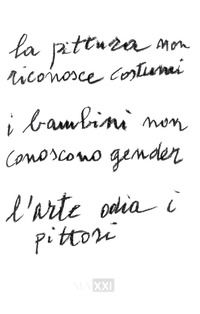 la pittura non
riconosce costumi
i bambini non
conoscono gender
l'arte odia i
pittori
MAXXI